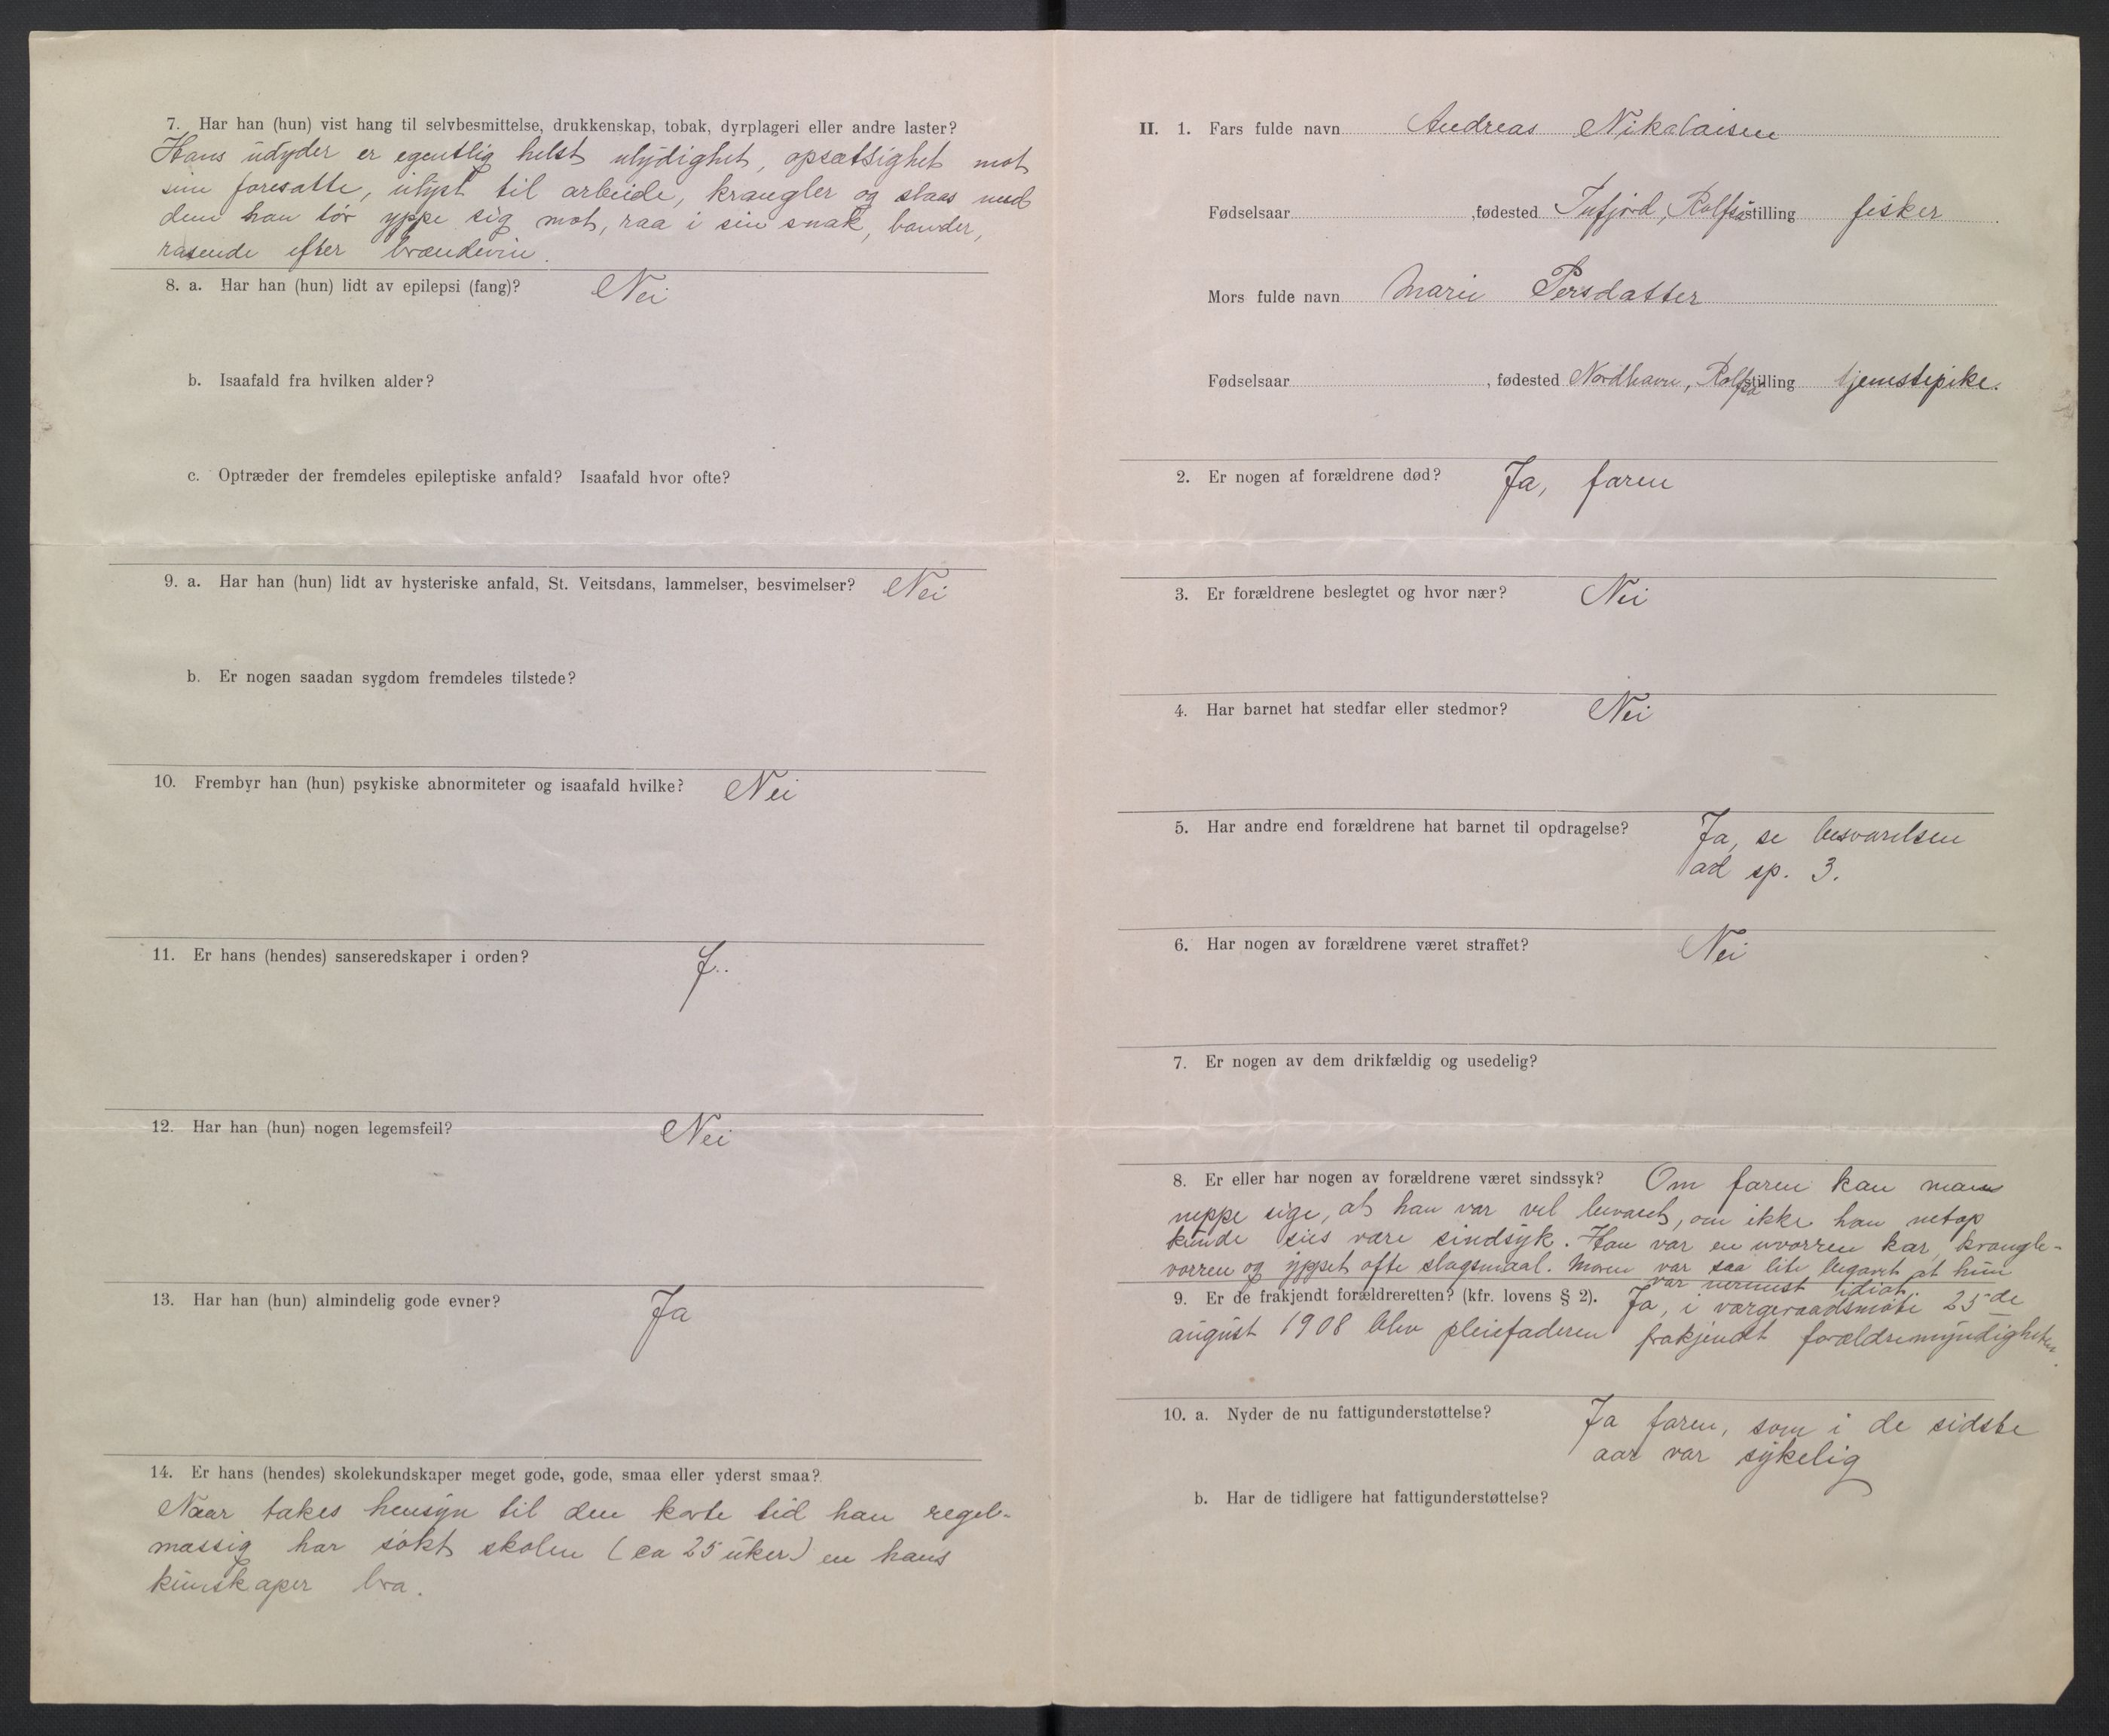 7. Har han (hun) vist hang til selvbesmittelse, drukkenskap, tobak, dyrplageri eller andre laster?
Hans udyder er egentlig helst ulydighet, opsætsighet mot
sine foresatte, ulyst til arbeide, krangler og slaas med
dem han tør yppe sig mot, raa i sin snak, bander,
rasende efter brændevin.
8. a. Har han (hun) lidt av epilepsi (fang)? Nei
b. Isaafald fra hvilken alder?
c. Optræder der fremdeles epileptiske anfald? Isaafald hvor ofte?
9. a. Har han (hun) lidt av hysteriske anfald, St. Veitsdans, lammelser, besvimelser? Nei
b. Er nogen saadan sygdom fremdeles tilstede?
10. Frembyr han (hun) psykiske abnormiteter og isaafald hvilke? Nei
11. Er hans (hendes) sanseredskaper i orden? J..
12. Har han (hun) nogen legemsfeil? Nei
13. Har han (hun) almindelig gode evner? Ja
14. Er hans (hendes) skolekundskaper meget gode, gode, smaa eller yderst smaa?
Naar takes hensyn til den korte tid han regel-
mæssig har søkt skolen (ca 25 uker) en hans
kunskaper bra.
II. 1. Fars fulde navn Andreas Nikolaisen
Fødselsaar , fødested Tufjord, Rolfsø stilling fisker
Mors fulde navn Marie Persdatter
Fødselsaar , fødested Nordhavn, Rolfsø stilling tjenestepike.
2. Er nogen af forældrene død? Ja, faren
3. Er forældrene beslegtet og hvor nær? Nei
4. Har barnet hat stedfar eller stedmor? Nei
5. Har andre end forældrene hat barnet til opdragelse? Ja, se besvarelsen
ad sp. 3.
6. Har nogen av forældrene været straffet? Nei
7. Er nogen av dem drikfældig og usedelig?
8. Er eller har nogen av forældrene været sindssyk? Om faren kan man
neppe sige, at han var vel bevaret, om ikke han netop
kunde sies være sindsyk. Han var en uvorren kar, krangle-
vorren og yppet ofte slagsmaal. Moren var saa lite begavet at hun
var nærmest idiot.
9. Er de frakjendt forældreretten? (kfr. lovens § 2). Ja, i værgeraadsmøte 25de
august 1908 blev pleiefaderen frakjendt forældremyndigheten.
10. a. Nyder de nu fattigunderstøttelse? Ja faren, som i de sidste
aar var sykelig
b. Har de tidligere hat fattigunderstøttelse?